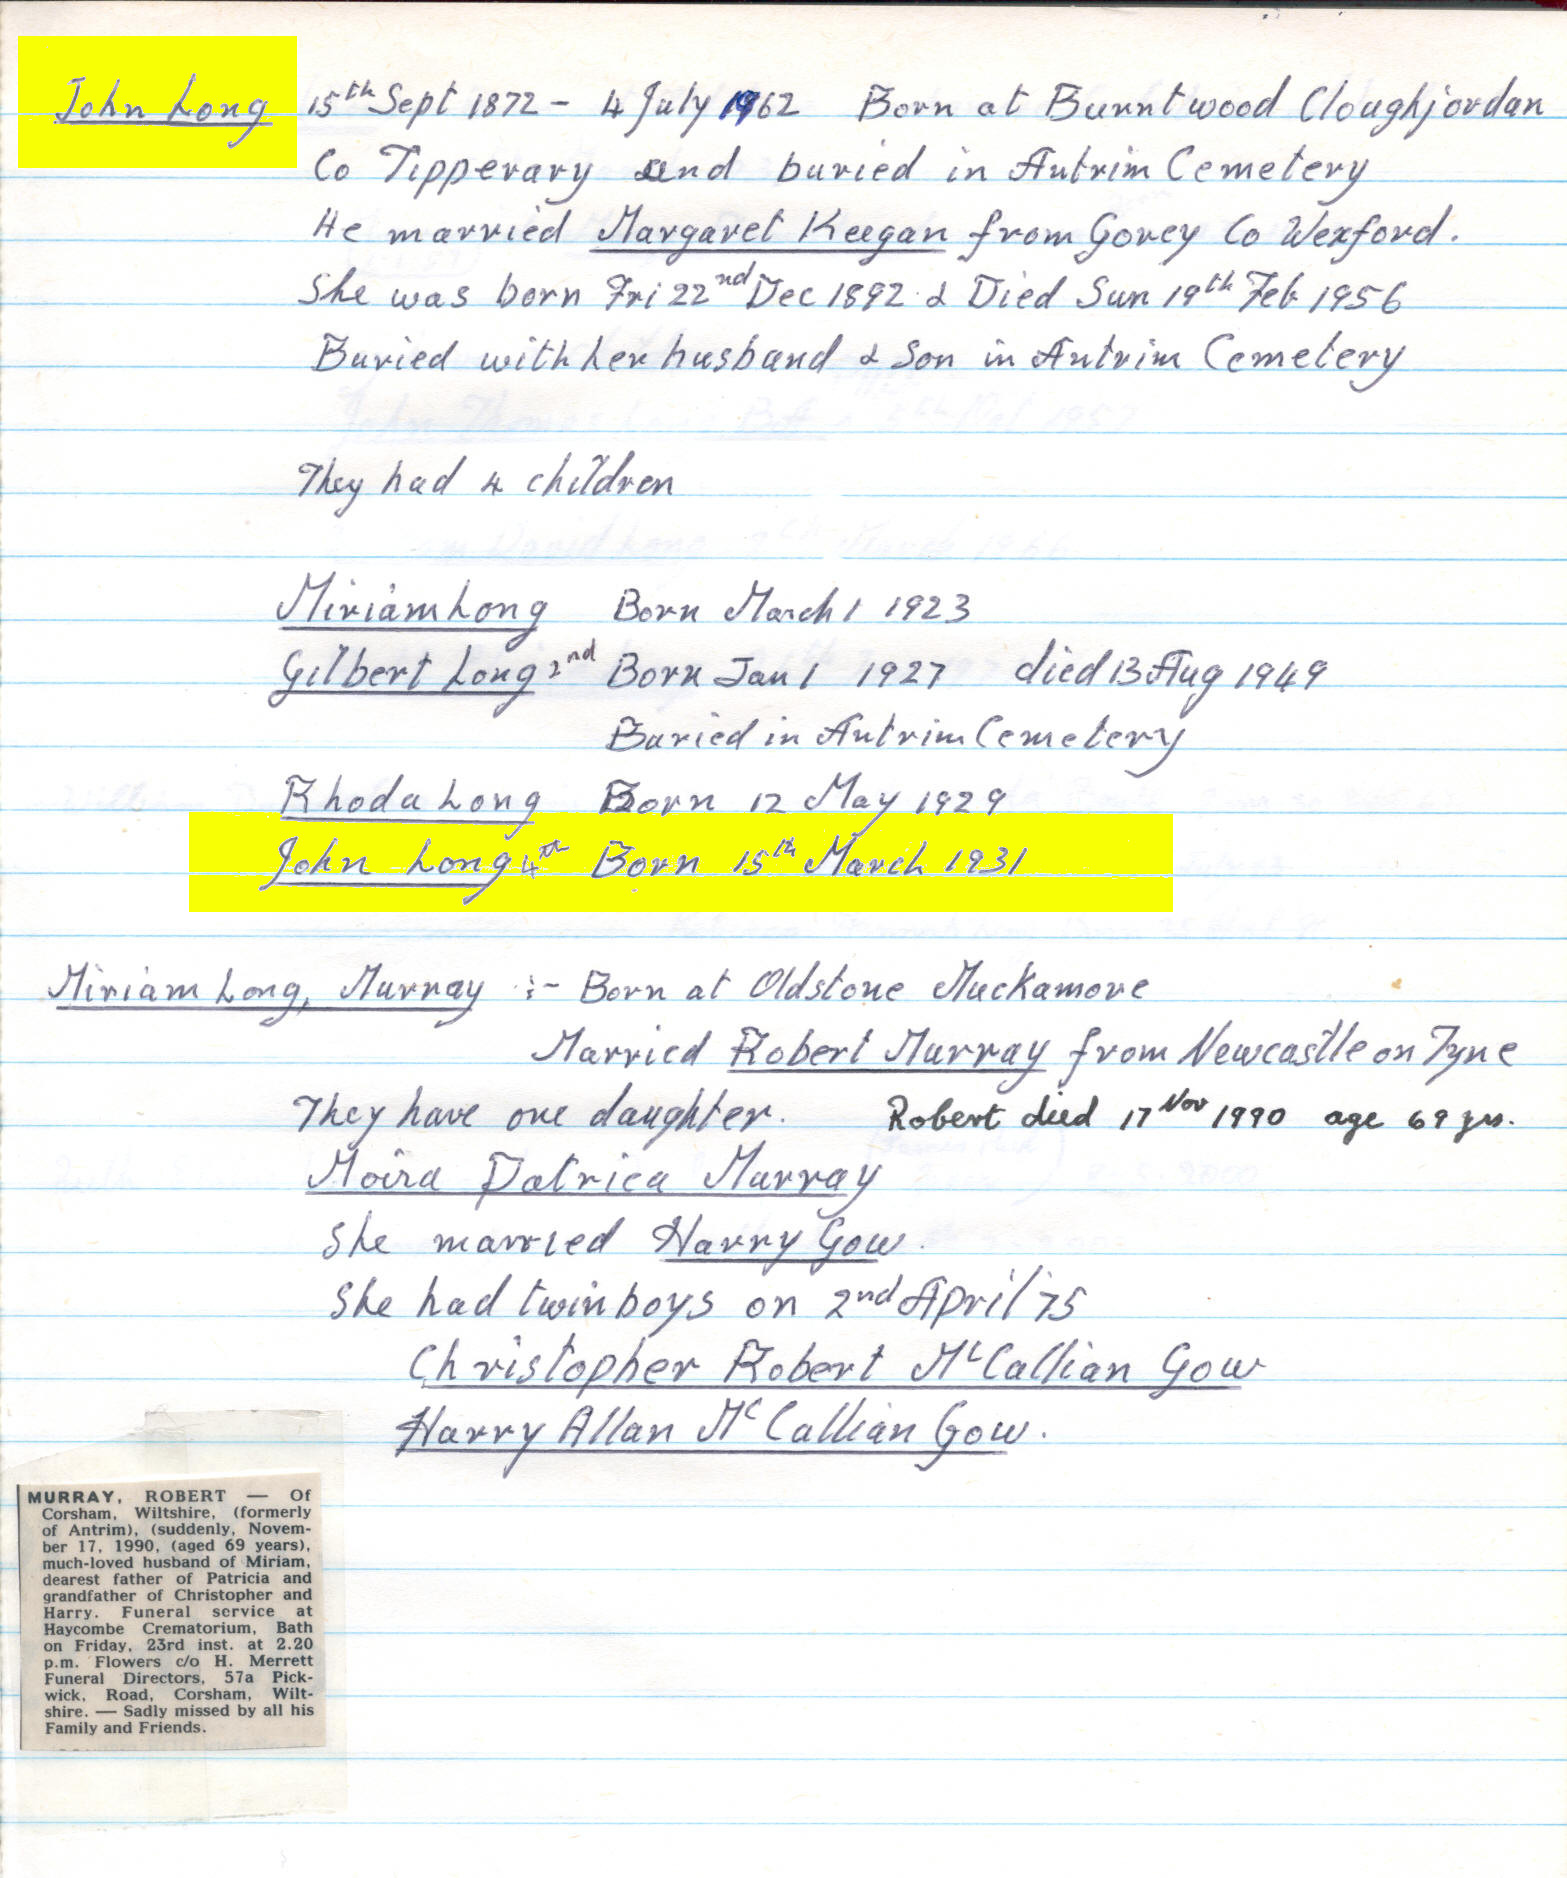 John Long 15th Sept 1872 - 4 July 1962 Born at Burntwood Cloughjordan
Co Tipperary and buried in Antrim Cemetery
He married Margaret Keegan from Gorey Co Wexford.
She was born Fri 22nd Dec 1892 & Died Sun 19th Feb 1956
Buried with her husband & Son in Antrim Cemetery
They had 4 children
Miriam Long Born March 1 1923
Gilbert Long 2nd Born Jan 1 1927 died 13 Aug 1949
Buried in Antrim Cemetery
Rhoda Long Born 12 May 1929
John Long 4th Born 15th March 1931
Miriam Long, Murray :- Born at Oldstone Muckamore
Married Robert Murray from Newcastle on Tyne
They have one daughter. Robert died 17 Nov 1990 age 69 yrs.
Moira Patrica Murray
She married Harry Gow.
She had twin boys on 2nd April 75
Christopher Robert McCallian Gow
Harry Allan McCallian Gow.
MURRAY, ROBERT — Of
Corsham, Wiltshire, (formerly
of Antrim), (suddenly, Novem-
ber 17, 1990, (aged 69 years),
much-loved husband of Miriam,
dearest father of Patricia and
grandfather of Christopher and
Harry. Funeral service at
Haycombe Crematorium, Bath
on Friday, 23rd inst. at 2.20
p.m. Flowers c/o H. Merrett
Funeral Directors, 57a Pick-
wick, Road, Corsham, Wilt-
shire. — Sadly missed by all his
Family and Friends.